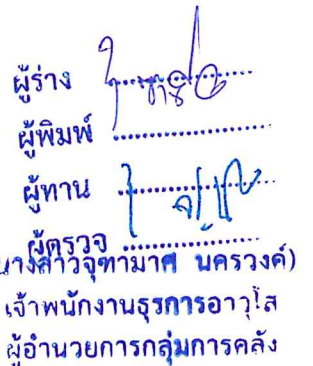 ผู้ร่าง ..................
ผู้พิมพ์ ..................
ผู้ทาน ..................
ผู้ตรวจ ..................
นางสาวจุฑามาศ นครวงศ์)
เจ้าพนักงานธุรการอาวุโส
ผู้อำนวยการกลุ่มการคลัง